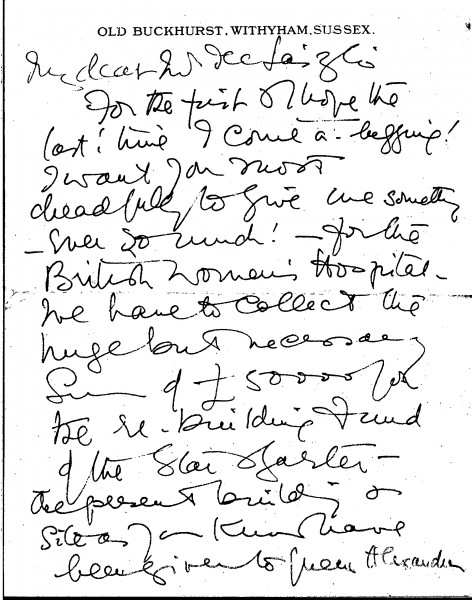 OLD BUCKHURST, WITHYHAM, SUSSEX.
My dear Mr de László
For the first & I hope the
last! time I come a-begging!
I want you most
dreadfully to give me something
- ever so much! - for the
British Women's Hospital -
We have to collect the
huge but necessary
Sum of £50000 for
the re-building Fund
of the Star & Garter -
the present building &
Site as you Know have
been given to Queen Alexandra